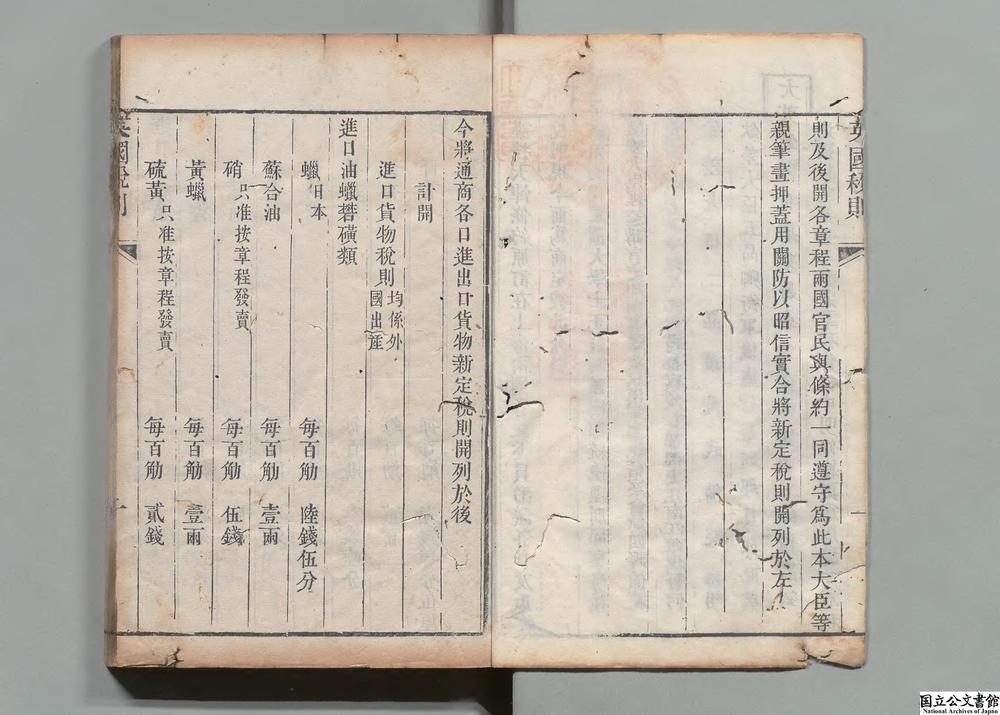 則及後開各章程兩國官民與條約一同遵守爲此本大臣等
親筆畫押蓋用關防以昭信實合將新定稅則開列於左
今將通商各口進出口貨物新定稅則開列於後
計開
進口貨物稅則均係外國出產
進口油蠟礬磺類
蠟日本 每百觔 陸錢伍分
蘇合油 每百觔 壹兩
硝只准按章程發賣 每百觔 伍錢
黃蠟 每百觔 壹兩
硫黃只准按章程發賣 每百觔 貳錢
英國稅則
国立公文書館
National Archives of Japan